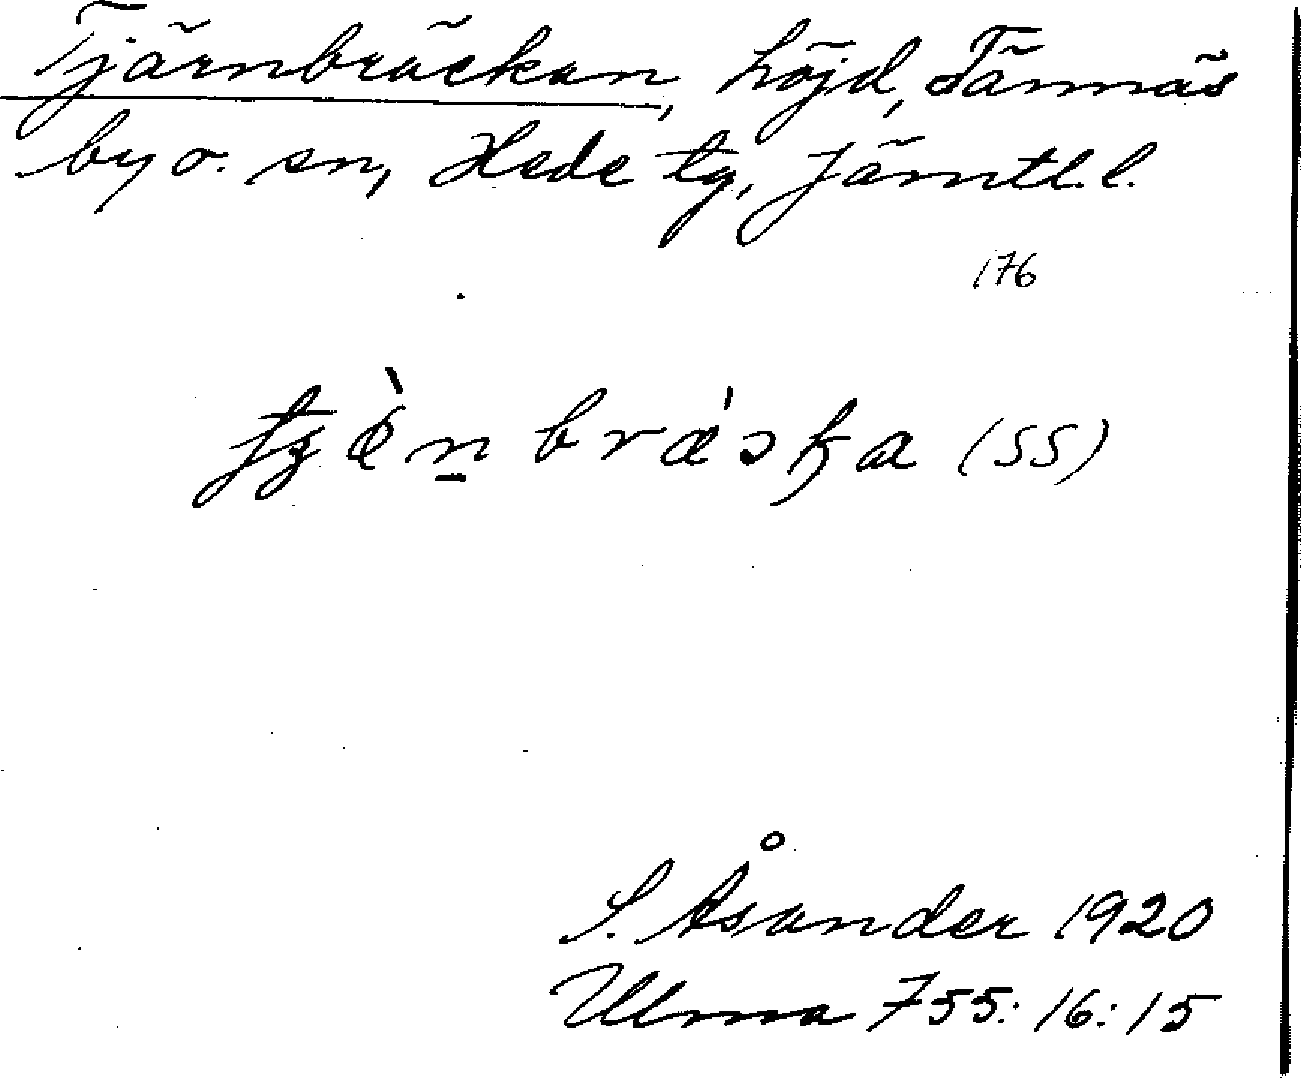 Tjärnbräckan, höjd, Tännäs
by o. sn, Hede tg, Jämtl.l.
176
(SS)
S. Åsander 1920
Ulma 755:16:15